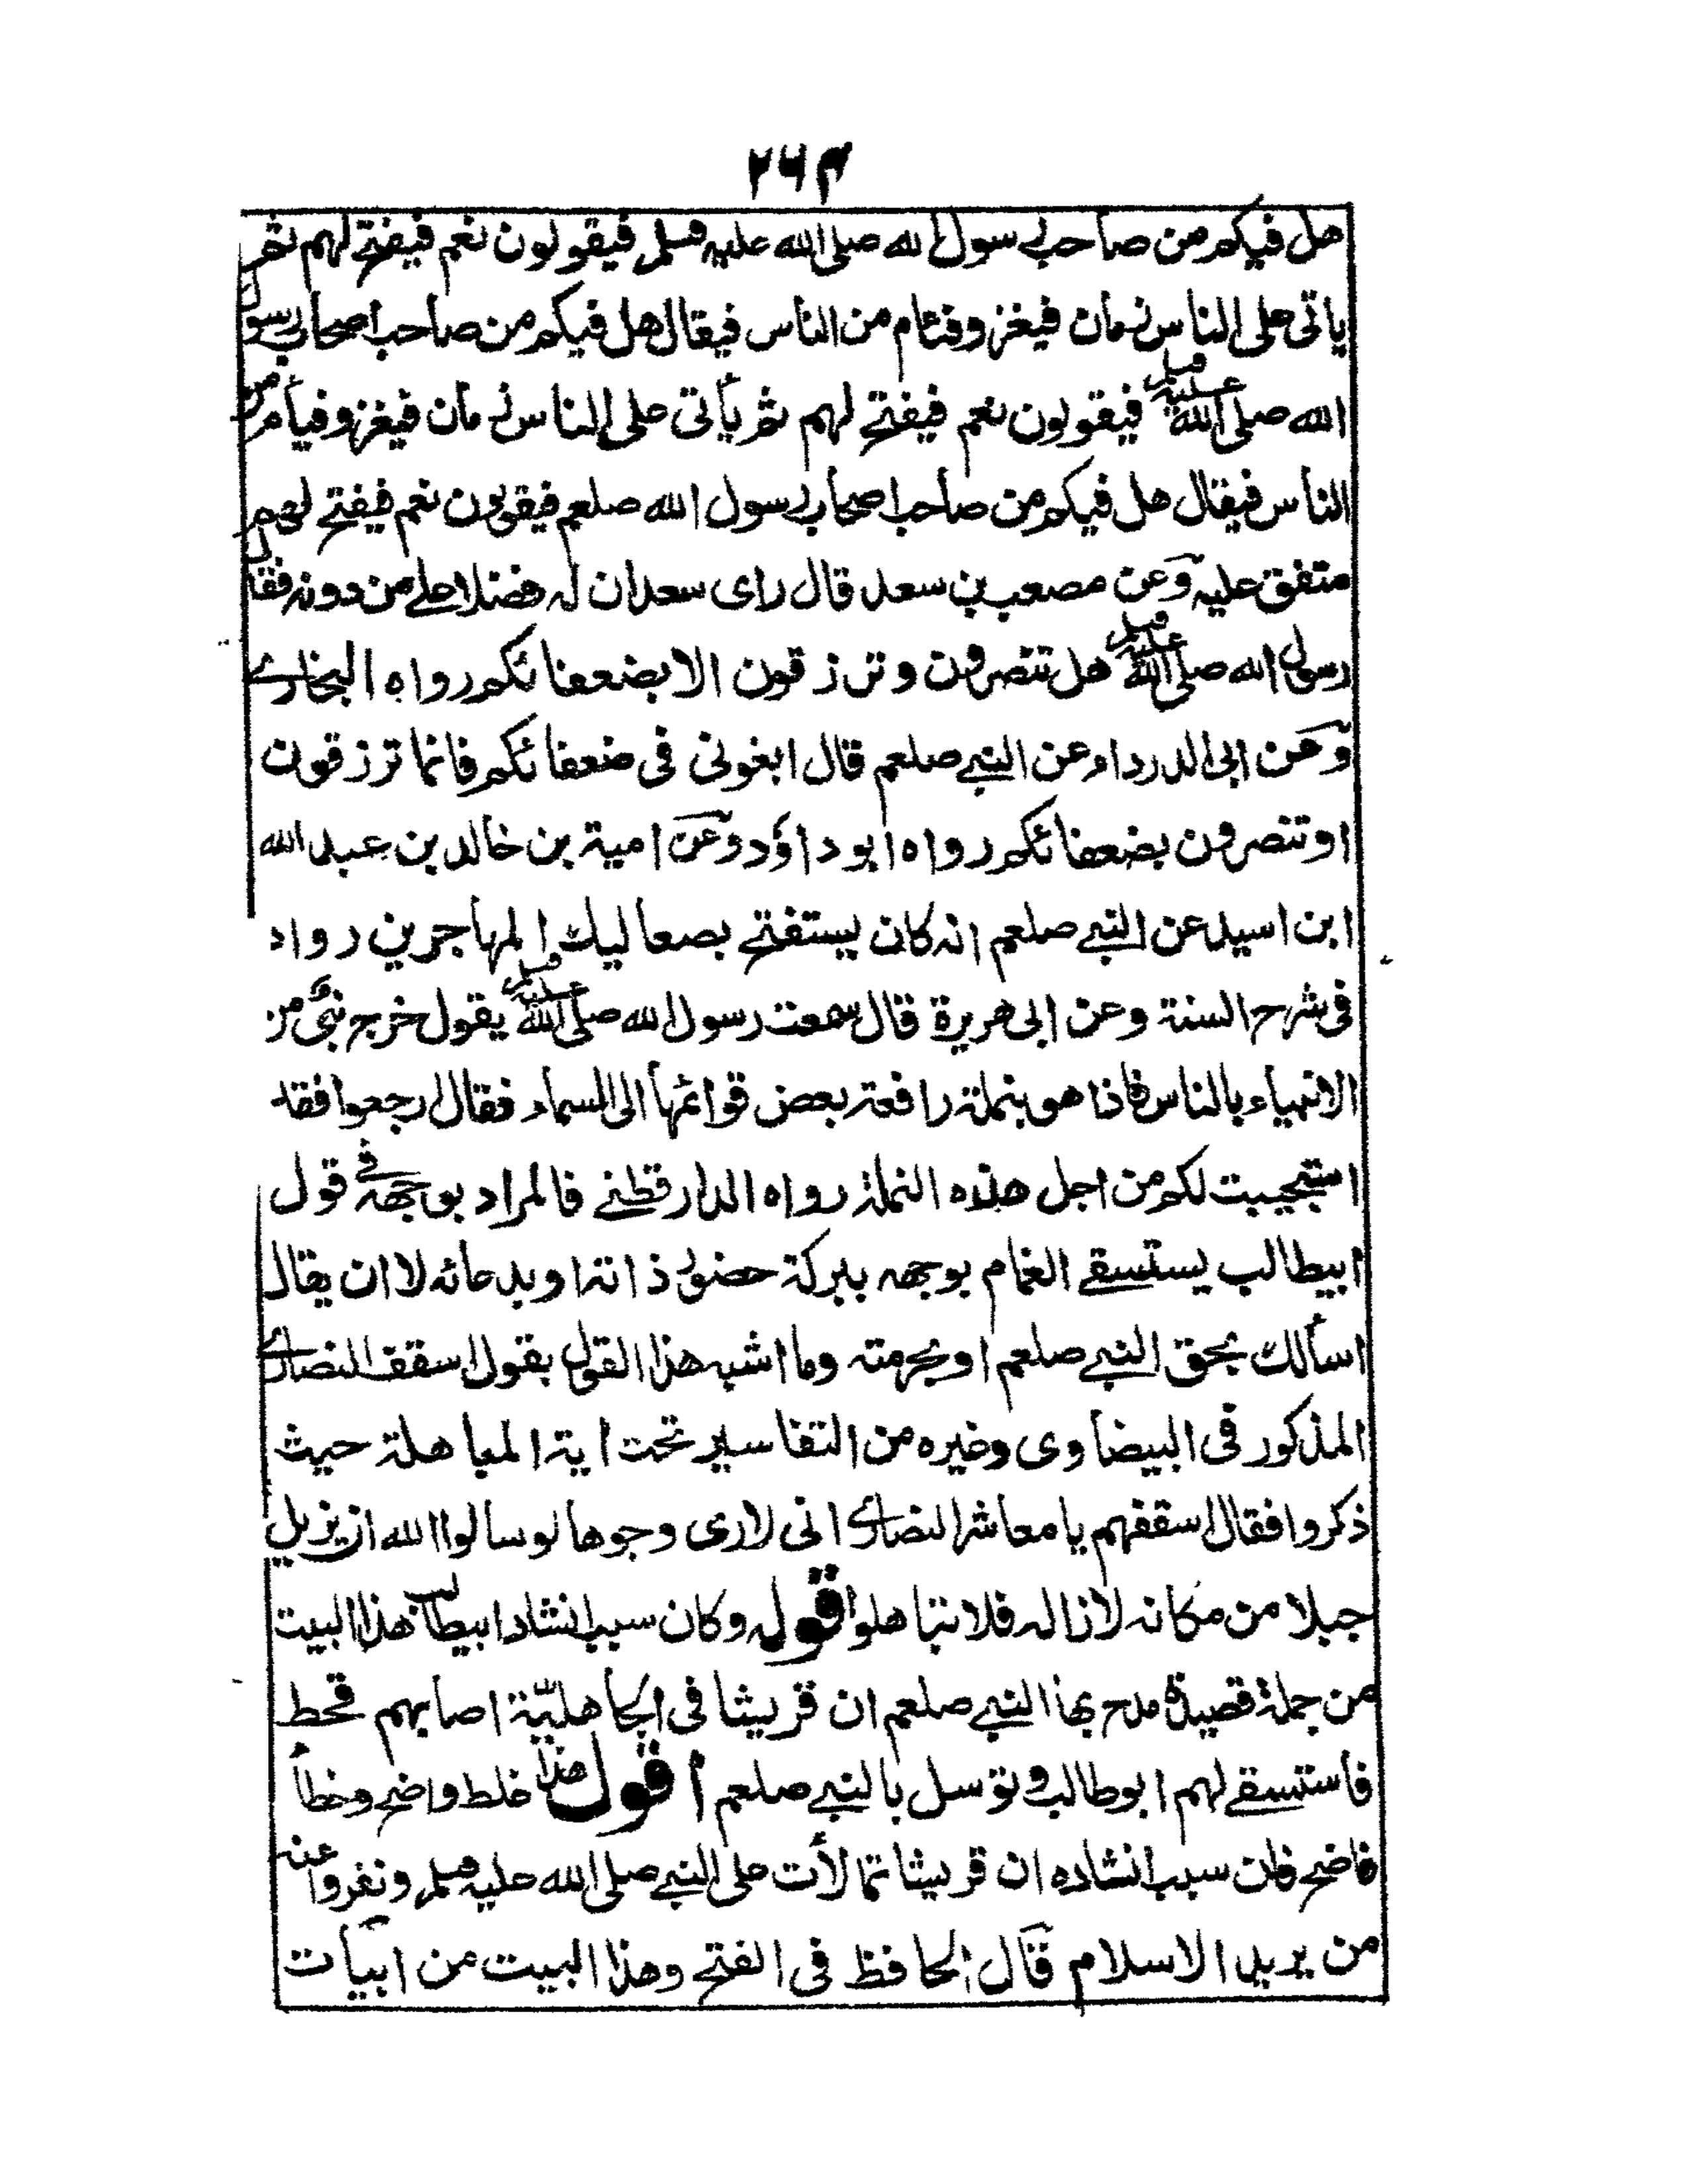 ۲۶۴
هل فيكم من صاحب رسول الله صلى الله عليه وسلم فيقولون نعم فيفتح لهم ثم
ياتى على الناس زمان فيغزو فئام من الناس فيقال هل فيكم من صاحب اصحاب رسول
الله صلى الله عليه وسلم فيقولون نعم فيفتح لهم ثم يأتى على الناس زمان فيغزو فيأم من
الناس فيقال هل فيكم من صاحب اصحاب رسول الله صلعم فيقولون نعم فيفتح لهم
متفق عليه وعن مصعب بن سعد قال راى سعد ان له فضلا على من دونه فقال
رسول الله صلى الله عليه وسلم هل تنصرون وترزقون الا بضعفائكم رواه البخارى
وعن ابى الدرداء عن النبى صلعم قال ابغونى فى ضعفائكم فانما ترزقون
او تنصرون بضعفائكم رواه ابو داؤد وعن امية بن خالد بن عبد الله
ابن اسيد عن النبى صلعم انه كان يستفتح بصعاليك المهاجرين رواه
فى شرح السنة وعن ابى هريرة قال سمعت رسول الله صلى الله عليه وسلم يقول خرج نبى من
الانبياء بالناس فاذا هو بنملة رافعة بعض قوائمها الى السماء فقال ارجعوا فقد
استجيبت لكم من اجل هذه النملة رواه الدارقطنى فالمراد بوجهه فى قول
ابيطالب يستسقى الغمام بوجهه ببركة حضور ذاته او بدعائه لا ان يقال
اسألك بحق النبى صلعم او بحرمته وما اشبه هذا القول بقول اسقف النصارى
المذكور فى البيضاوى وغيره من التفاسير تحت اية المباهلة حيث
ذكروا فقال اسقفهم يا معاشر النصارى انى لارى وجوها لو سالوا الله ان يزيل
جبلا من مكانه لازاله فلا تباهلوا قوله وكان سبب انشاد ابيطالب هذا البيت
من جملة قصيدة مدح بها النبى صلعم ان قريشا فى الجاهليّة اصابهم قحط
فاستسقى لهم ابو طالب وتوسل بالنبى صلعم اقول هذا غلط واضح وخطأ
فاضح فان سبب انشاده ان قريشا تمالأت على النبى صلى الله عليه وسلم ونفروا عنه
من يريد الاسلام قال الحافظ فى الفتح وهذا البيت من ابيات